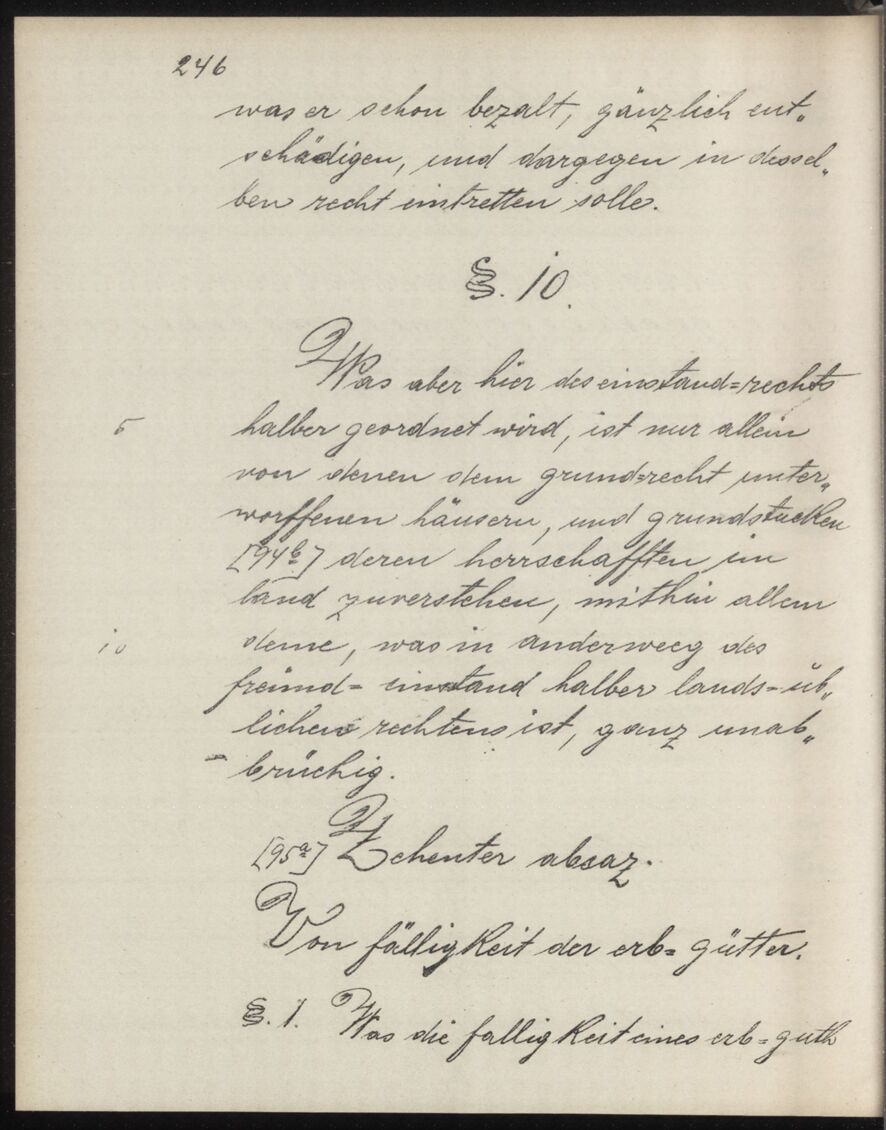 246
was er schon bezalt, gänzlich ent„
schädigen, und dargegen in dessel„
ben recht eintretten solle.
§. 10.
Was aber hier des einstand=rechts
5 halber geordnet wird, ist nur allein
von denen dem grund=recht unter„
worffenen häusern, und grundstucken
[94b] deren herrschafften im
land zuverstehen, mithin allem
10 deme, was in anderweeg des
freünd= einstand halber lands=üb„
lichen rechtens ist, ganz unab„
brüchig.
[95a] Zehenter absaz.
Von fälligkeit der erb=gütter.
§. 1. Was die falligkeit eines erb=guth